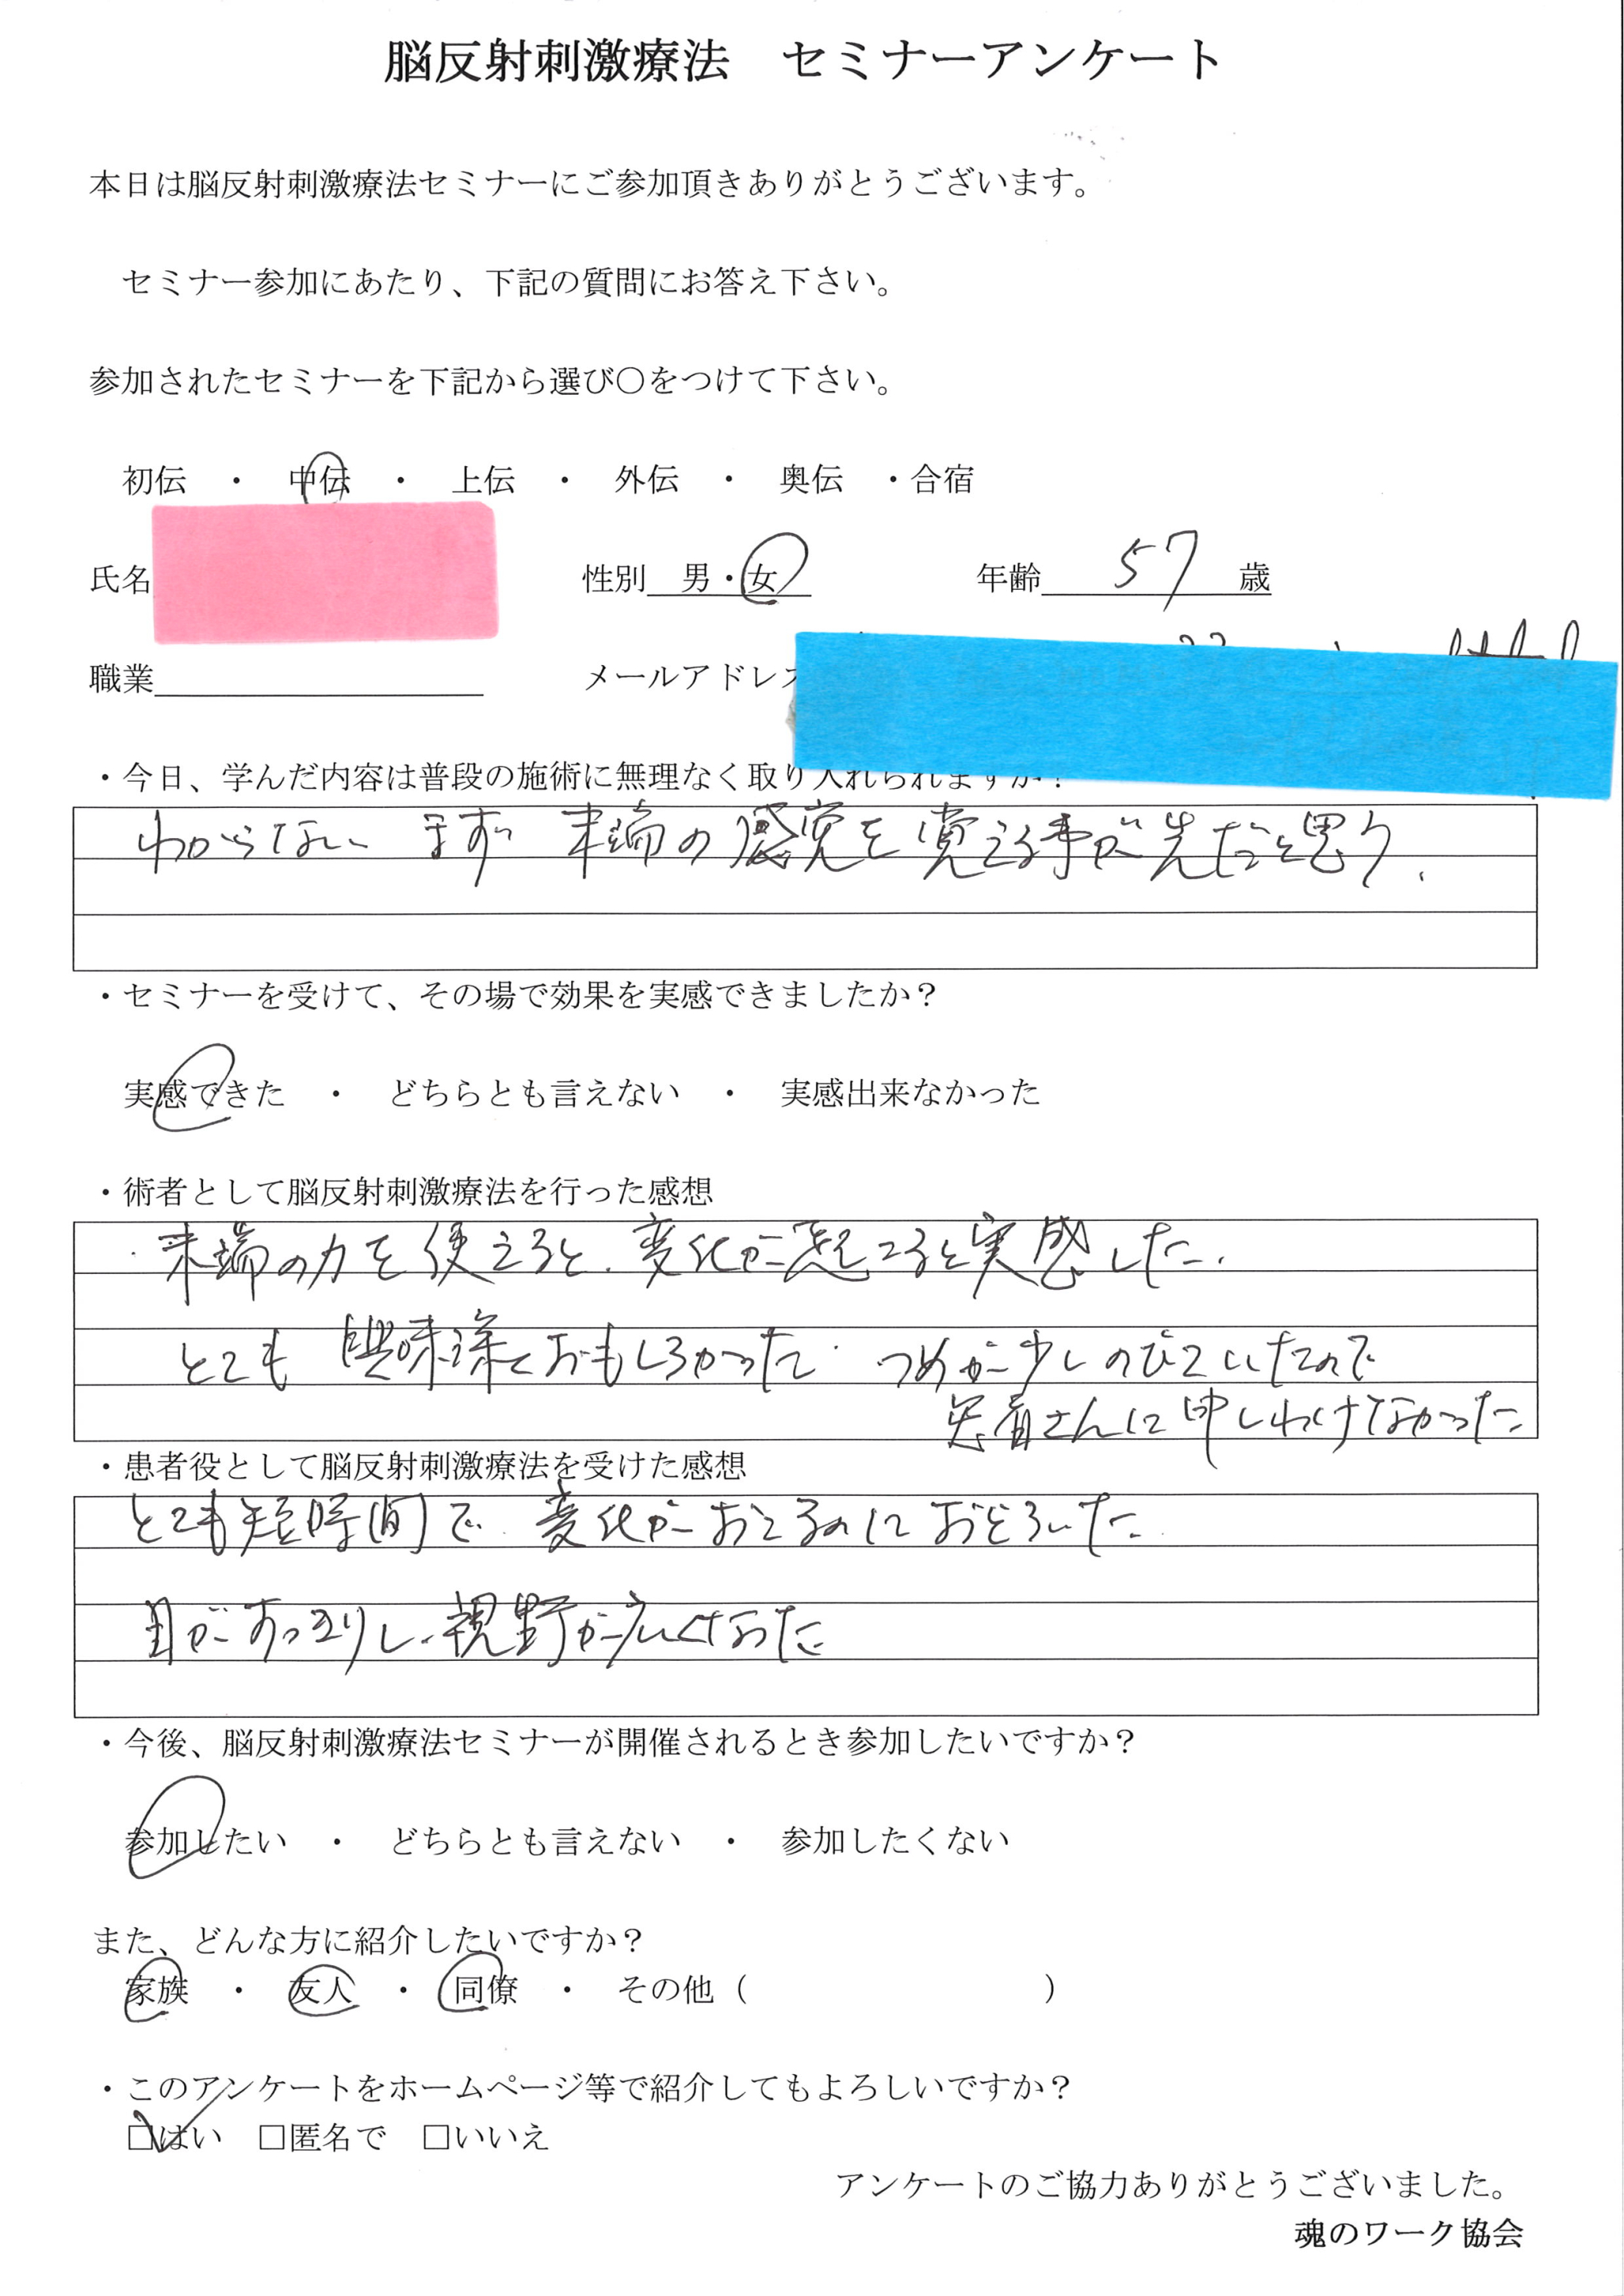 脳反射刺激療法　セミナーアンケート
本日は脳反射刺激療法セミナーにご参加頂きありがとうございます。
セミナー参加にあたり、下記の質問にお答え下さい。
参加されたセミナーを下記から選び〇をつけて下さい。
初伝　・　中伝　・　上伝　・　外伝　・　奥伝　・合宿
氏名　性別　男・女　年齢　57　歳
職業　メールアドレス
・今日、学んだ内容は普段の施術に無理なく取り入れられますか？
わからない　まず　末端の感覚を覚える事が先だと思う.
・セミナーを受けて、その場で効果を実感できましたか？
実感できた　・　どちらとも言えない　・　実感出来なかった
・術者として脳反射刺激療法を行った感想
・末端の力を使えると、変化が起こると実感した.
とても　興味深くおもしろかった.　つめが少しのびていたので
患者さんに申しわけなかった
・患者役として脳反射刺激療法を受けた感想
とても短時間で　変化がおこるのにおどろいた
目がすっきりし、視野が広くなった
・今後、脳反射刺激療法セミナーが開催されるとき参加したいですか？
参加したい　・　どちらとも言えない　・　参加したくない
また、どんな方に紹介したいですか？
家族　・　友人　・　同僚　・　その他（　　　　　　　　　）
・このアンケートをホームページ等で紹介してもよろしいですか？
□はい　□匿名で　□いいえ
アンケートのご協力ありがとうございました。
魂のワーク協会